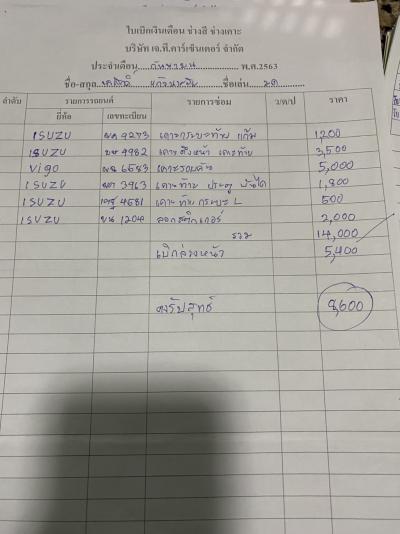 ใบเบิกเงินเดือน ช่างสี ช่างเคาะ
บริษัท เจ.ที.คาร์เซ็นเตอร์ จำกัด
ประจำเดือน....กันยายน....พ.ศ.2563
ชื่อ-สกุล ชื่อเล่น
ลำดับ รายการรถยนต์ รายการซ่อม ว/ด/ป ราคา
ยี่ห้อ เลขทะเบียน
ISUZU 9273 เคาะกระบะท้าย แก้ม 1,200
ISUZU 4982 เคาะ หน้า เคาะท้าย 3,500
Vigo 6583 เคาะรอบคัน 5,000
ISUZU 3963 เคาะท้าย ประตู บันได 1,800
ISUZU 4681 เคาะท้ายกระบะ L 500
ISUZU ขน 1204 ลอกสติกเกอร์ 2,000
รวม 14,000
เบิกล่วงหน้า 5,400
คงรับสุทธิ์ 8,600